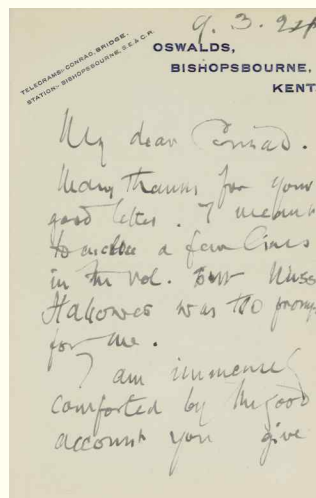 9.3.24
TELEGRAMS:- CONRAD, BRIDGE.
STATION:- BISHOPSBOURNE, S.E. & C.R.
OSWALDS,
BISHOPSBOURNE,
KENT
My dear Conrad.
Many thanks for your
good letter. I meant
to enclose a few lines
in the vol. but Miss
Hallowes was too promp
for me.
I am immensel
comforted by the good
account you give